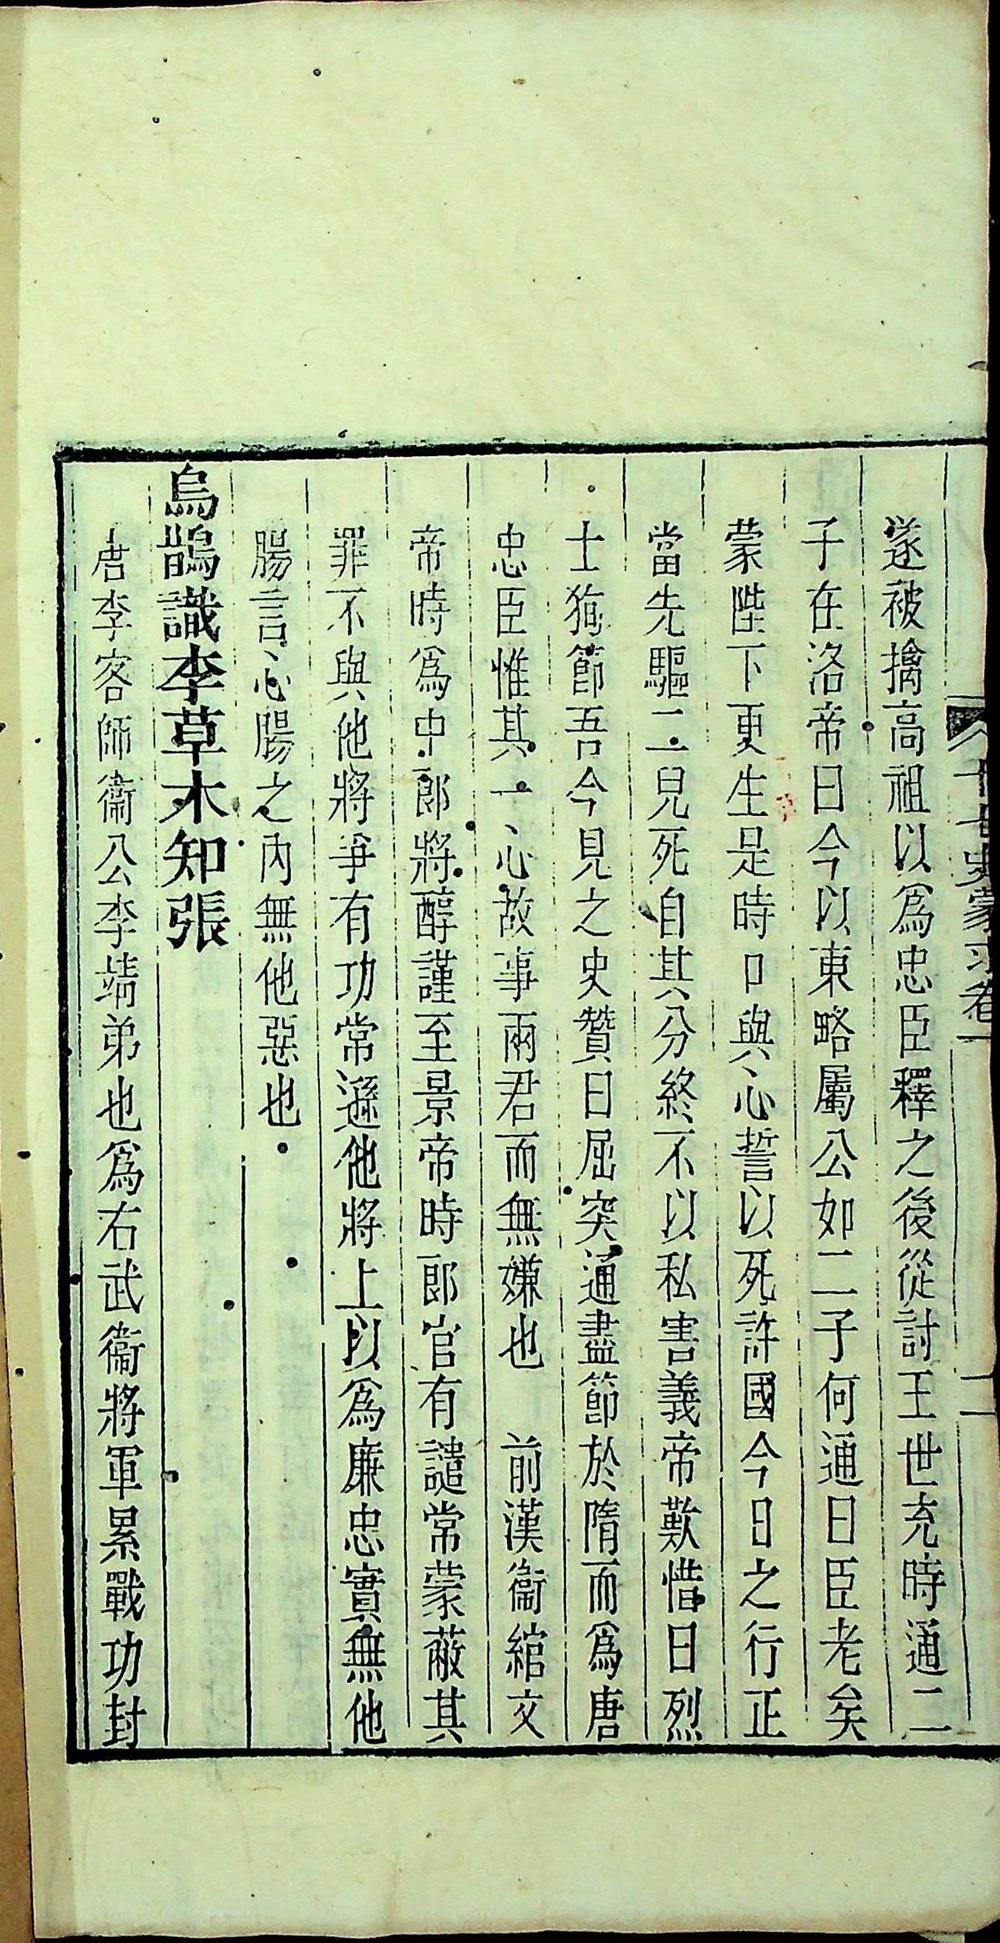 十七史蒙求卷一
二
遂被擒高祖以爲忠臣釋之後從討王世充時通二
子在洛帝曰今以東略屬公如二子何通曰臣老矣
蒙陛下更生是時口與心誓以死許國今日之行正
當先驅二兒死自其分終不以私害義帝歎惜曰烈
士狥節吾今見之史贊曰屈突通盡節於隋而爲唐
忠臣惟其一心故事兩君而無嫌也　前漢衞綰文
帝時爲中郞將醇謹至景帝時郞官有譴常蒙蔽其
罪不與他將爭有功常遜他將上以爲廉忠實無他
腸言心腸之內無他惡也
烏鵲識李草木知張
唐李客師衞公李靖弟也爲右武衞將軍累戰功封